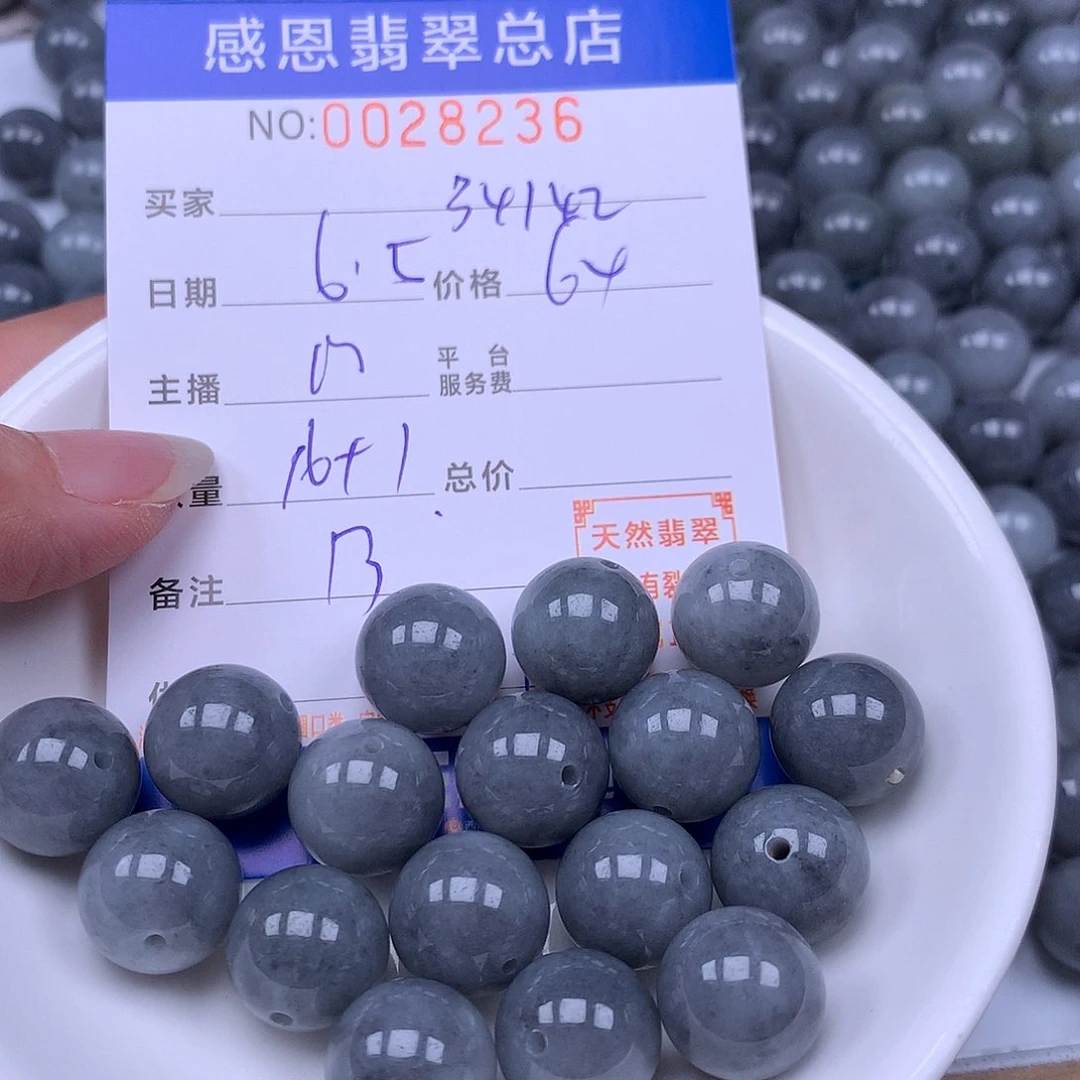 感恩翡翠总店
NO:0028236
买家 34142
日期 6.5 价格 64
主播 平台服务费
量 16+1 总价
备注 13
天然翡翠
有裂